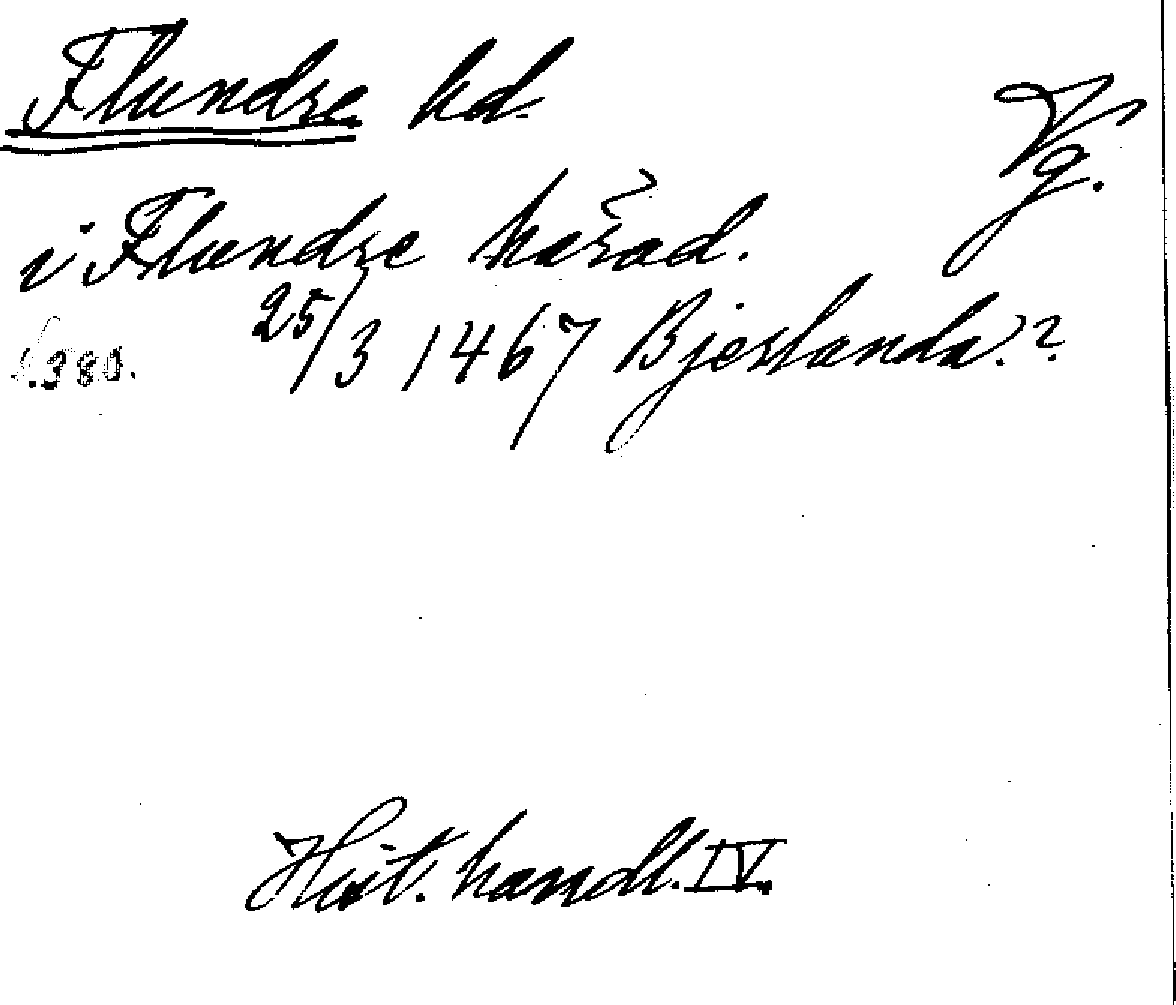 Flundre hd.
Vg.
i Flundre hærad.
s. 380. 25/3 1467 Bjerlanda??
Hist. handl. IV.